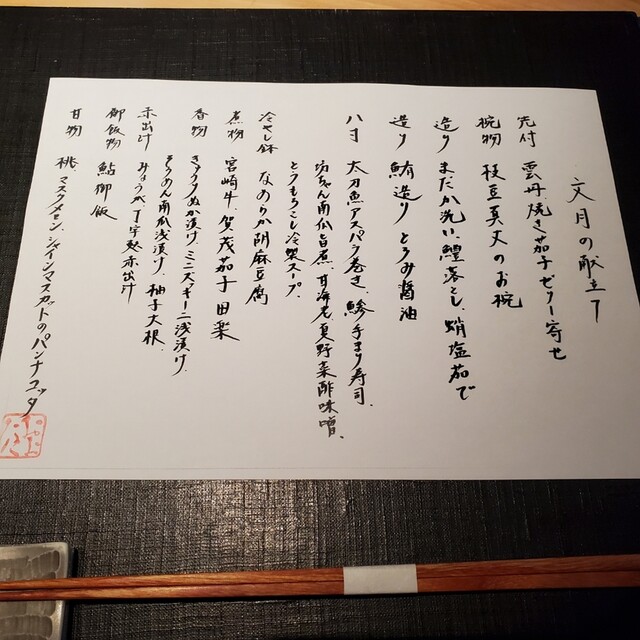 文月の献立て
先付 雲丹、焼き茄子ゼリー寄せ
椀物 枝豆真丈のお椀
造り まだか洗い、鱧落とし、蛸塩茹で
造り 鮪造り とろみ醤油
八寸 太刀魚アスパラ巻き、鯵手まり寿司、
坊ちゃん南瓜旨煮、甘海老、夏野菜酢味噌、
とうもろこし冷製スープ、
冷やし鉢 なめらか胡麻豆腐
煮物 宮崎牛、賀茂茄子田楽
香物 きゅうりぬか漬け、ミニズッキーニ浅漬け、
そうめん南瓜浅漬け、柚子大根、
赤出汁 みょうが、丁字麩赤出汁
御飯物 鮎御飯
甘物 桃、マスクメロン、シャインマスカットのパンナコッタ